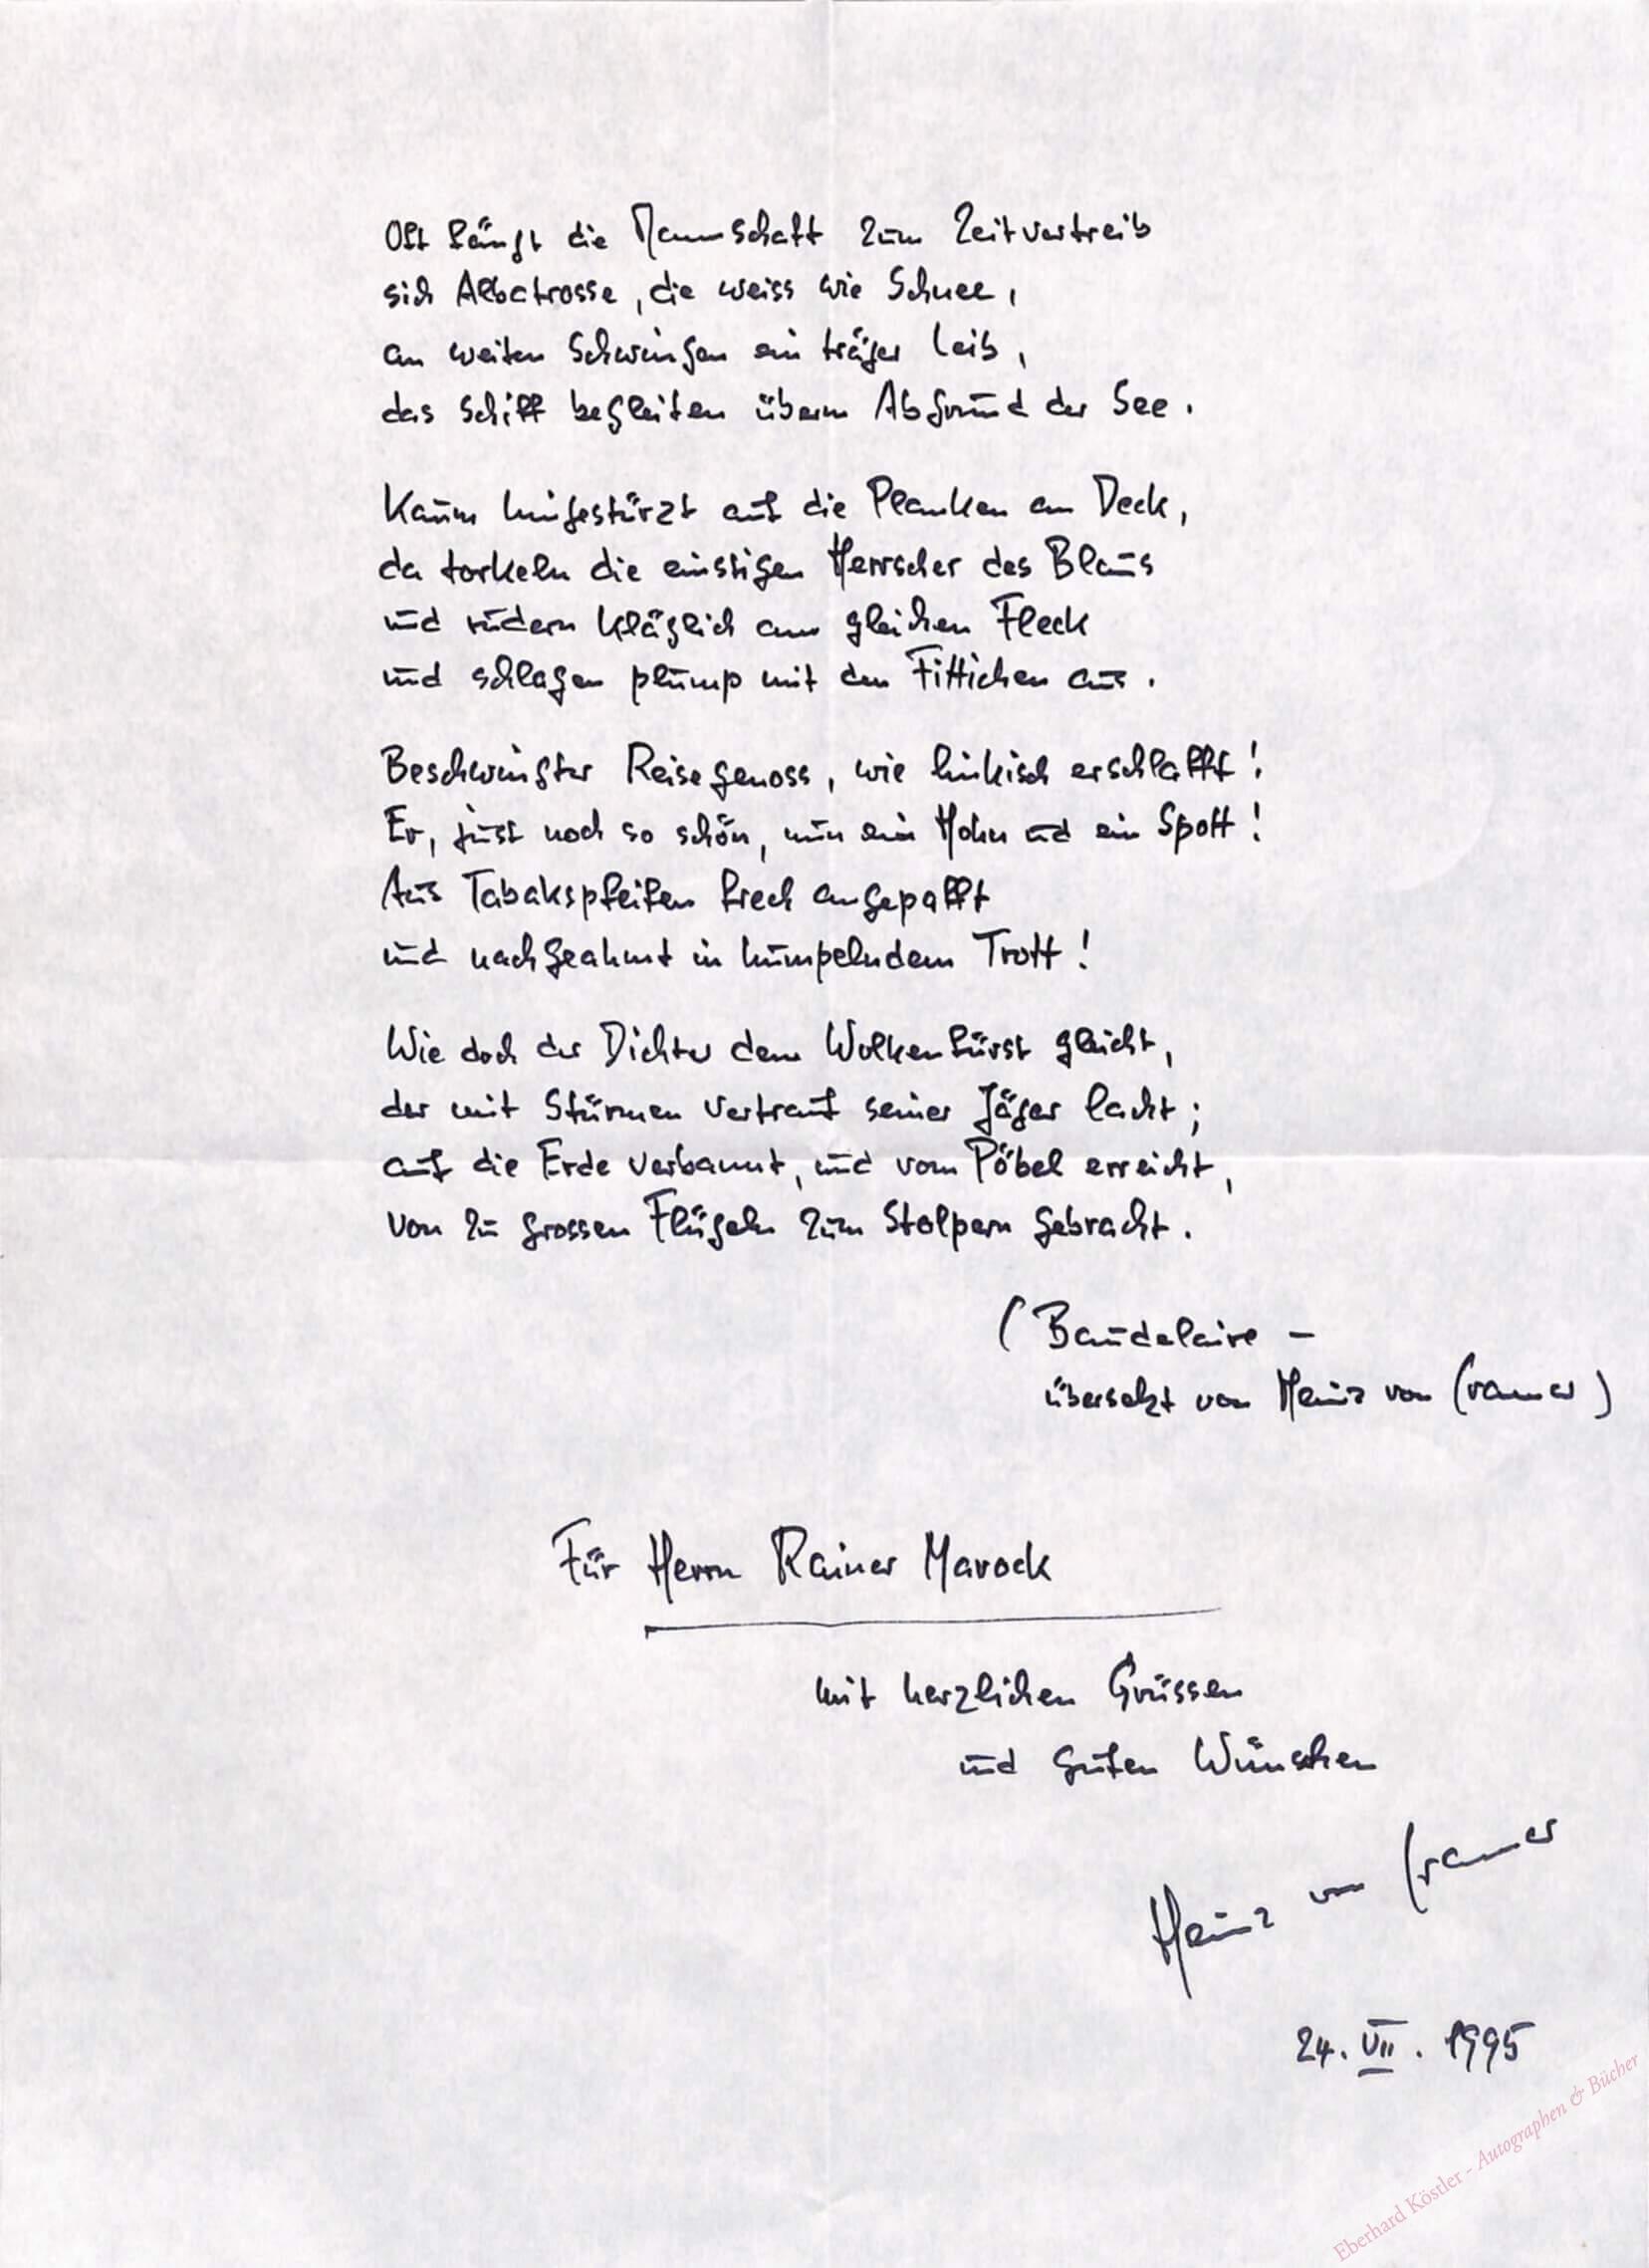 Oft fängt die Mannschaft zum Zeitvertreib
sich Albatrosse, die weiss wie Schnee,
an weiten Schwingen ein träger Leib,
das Schiff begleiten überm Abgrund der See.
Kaum hingestürzt auf die Planken an Deck,
da torkeln die einstigen Herrscher des Blaus
und rudern kläglich am gleichen Fleck
und schlagen plump mit den Fittichen aus.
Beschwingter Reisegenoss, wie linkisch erschlafft!
Er, just noch so schön, nun ein Hohn und ein Spott!
Aus Tabakspfeifen frech angepafft
und nachgeahmt in humpelndem Trott!
Wie doch der Dichter dem Wolkenfürst gleicht,
der mit Stürmen vertraut seiner Jäger lacht;
auf die Erde verbannt, und vom Pöbel erreicht,
von zu grossen Flügeln zum Stolpern gebracht.
(Baudelaire –
übersetzt von Heinz von Cramer)
Für Herrn Rainer Marock
mit herzlichen Grüssen
und guten Wünschen
Heinz von Cramer
24. VII. 1995
Eberhard Köstler - Autographen & Bücher